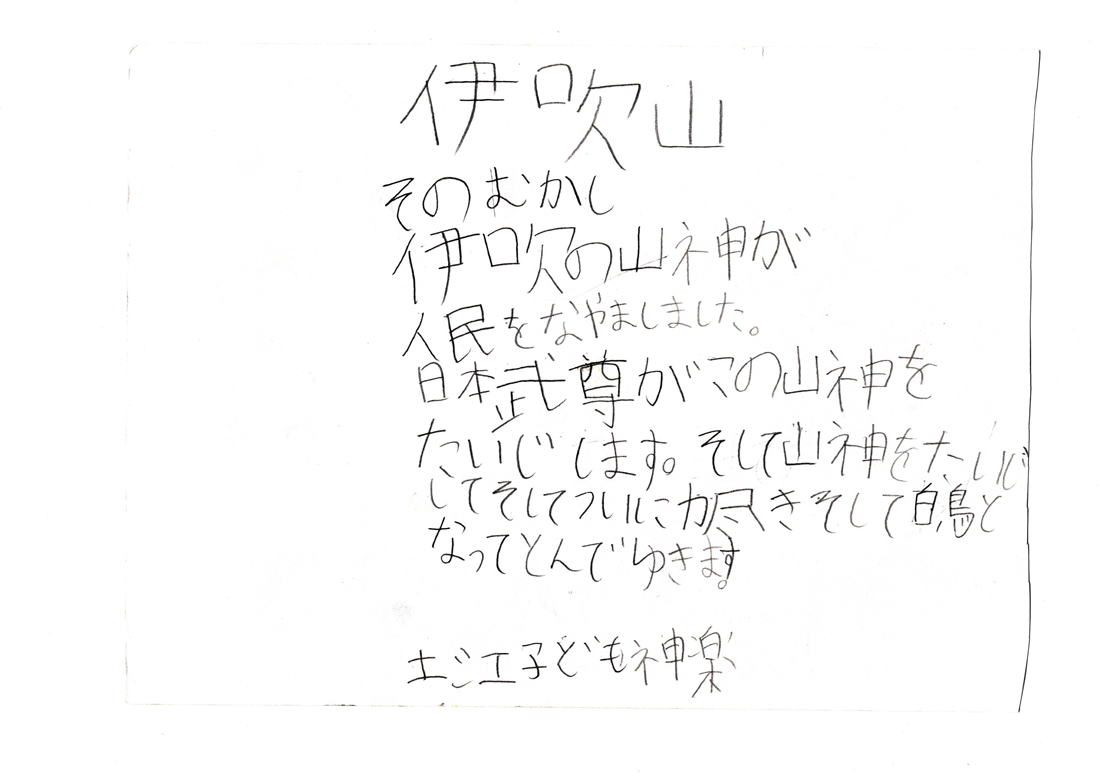 伊吹山
そのむかし
伊吹の山神が
人民をなやましました。
日本武尊がこの山神を
たいじします。そして山神をたいじ
してそしてついに力尽きそして白鳥と
なってとんでゆきます
土江子ども神楽